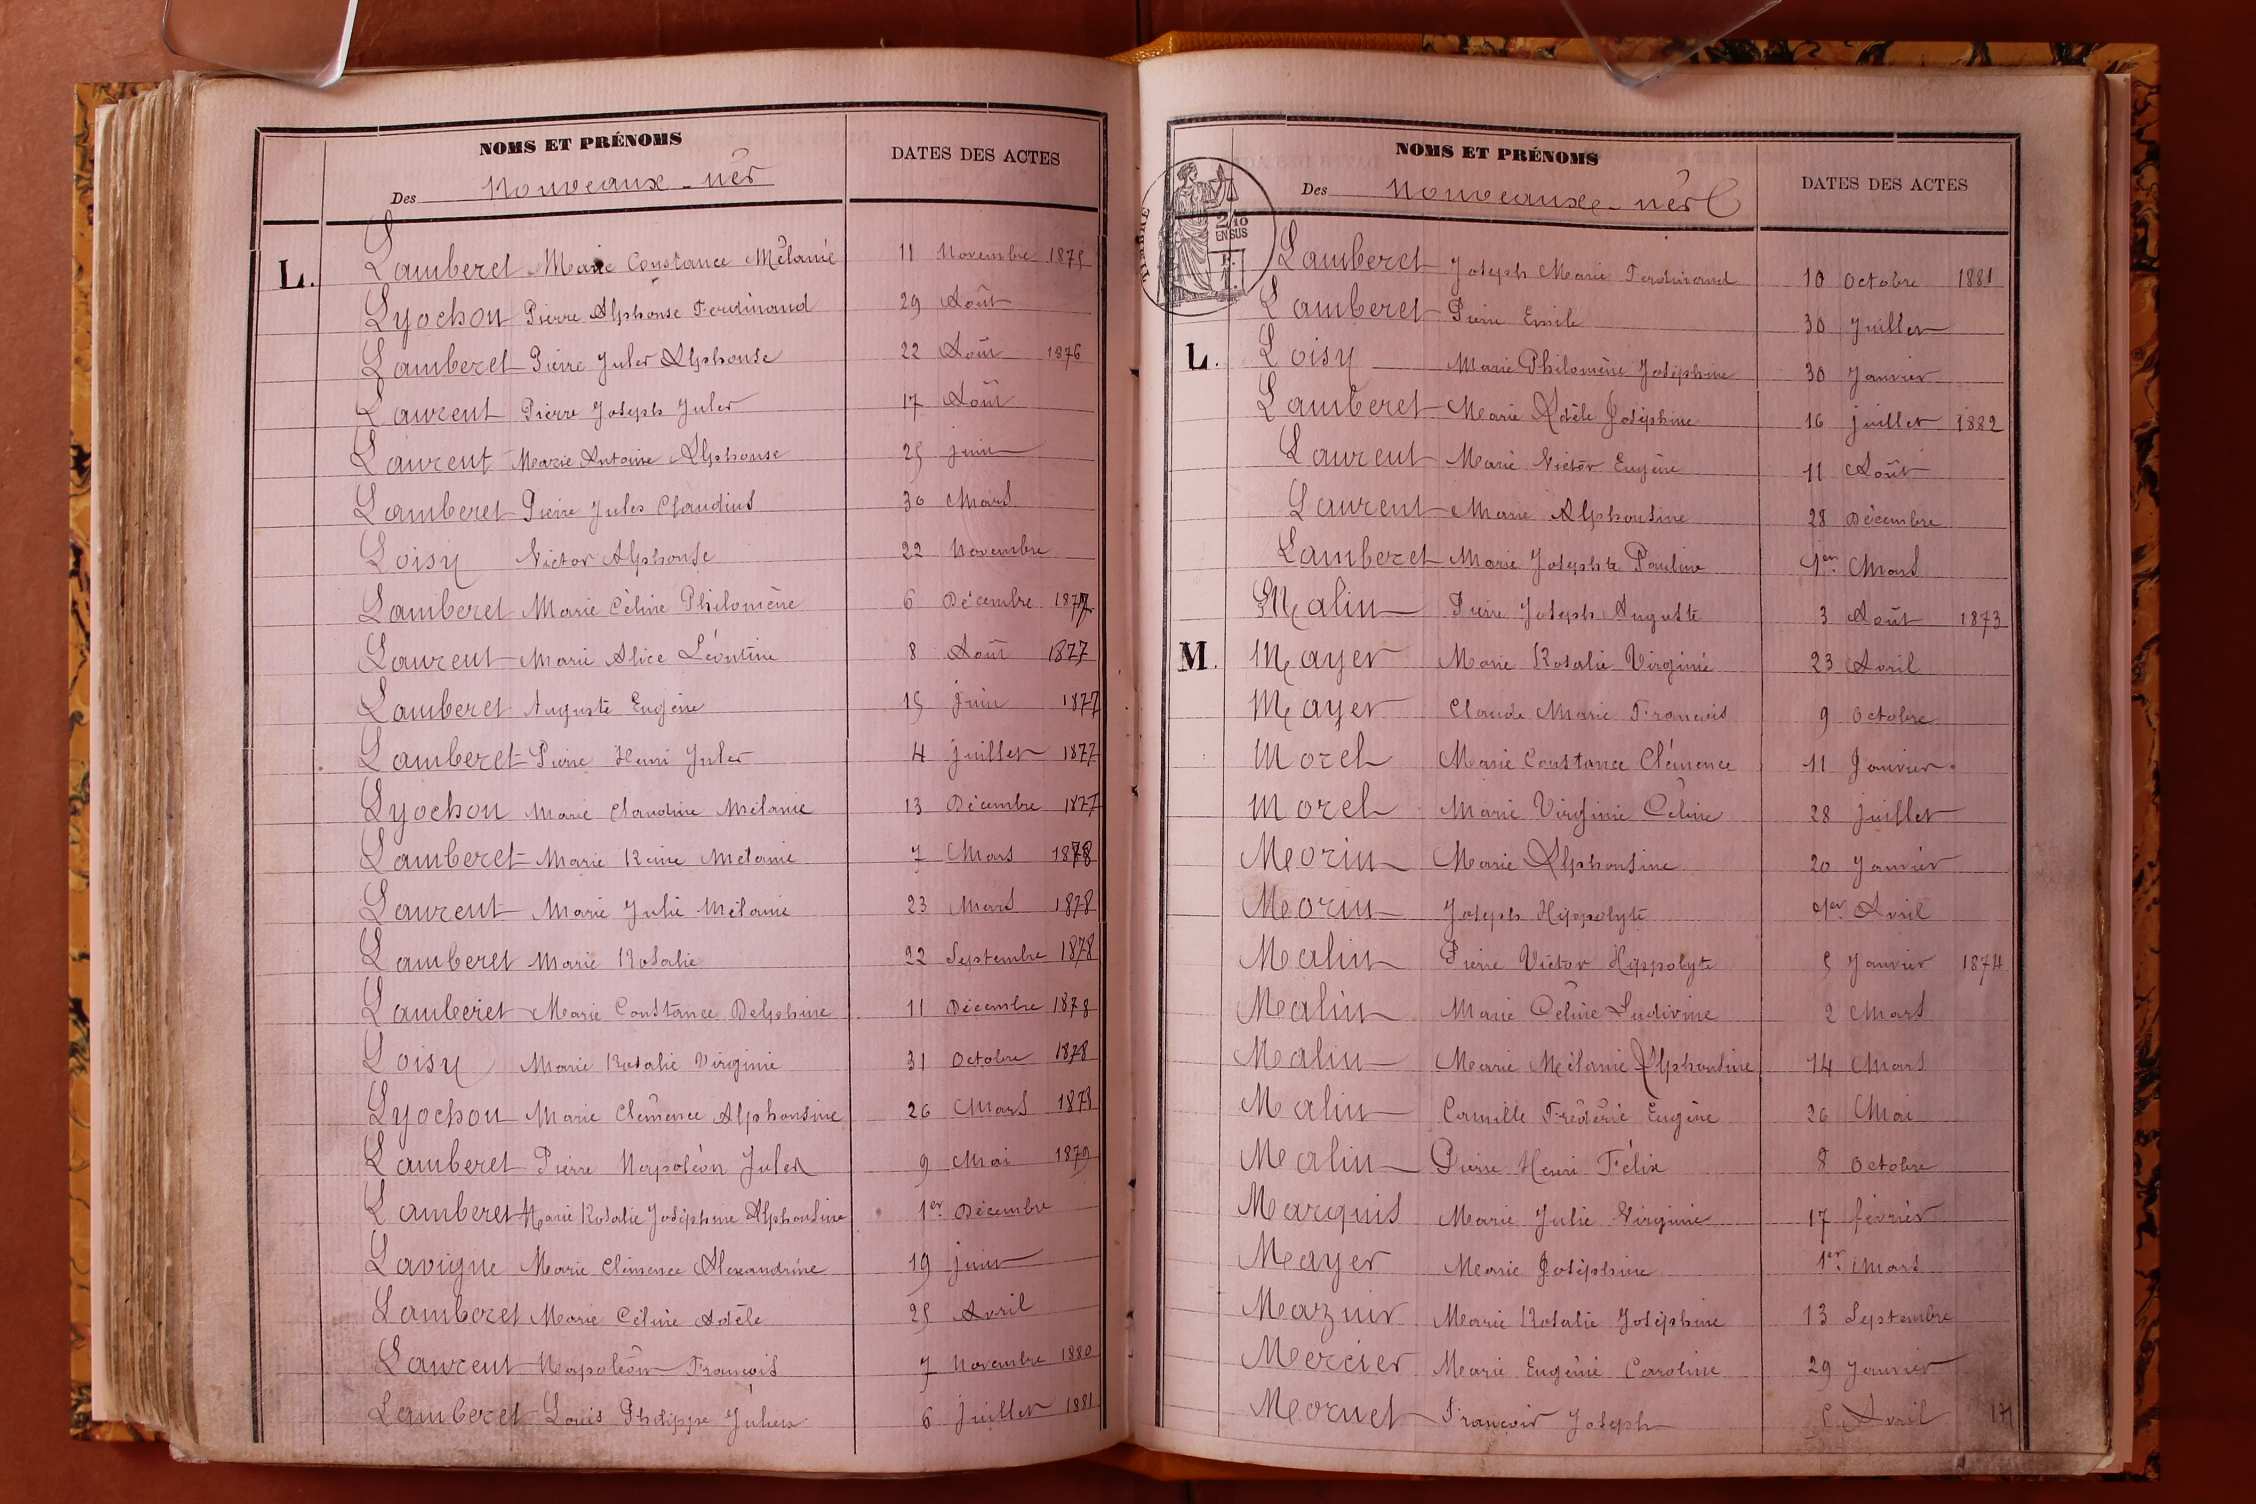 NOMS ET PRÉNOMS
DATES DES ACTES
Des Nouveaux-nés
L. Lamberet Marie Constance Mélanie 11 Novembre 1875
Lyochon Pierre Alphonse Ferdinand 29 Août
Lamberet Pierre Jules Alphonse 22 Août 1876
Laurent Pierre Joseph Jules 17 Août
Laurent Marie Antoine Alphonse 25 juin
Lamberet Pierre Jules Claudius 30 Mars
Loisy Victor Alphonse 22 Novembre
Lamberet Marie Céline Philomène 6 Décembre 1877
Laurent Marie Alice Léontine 8 Août 1877
Lamberet Auguste Eugène 15 juin 1877
Lamberet Pierre Henri Jules 4 juillet 1877
Lyochon Marie Claudine Mélanie 13 Décembre 1877
Lamberet Marie Reine Mélanie 7 Mars 1878
Laurent Marie Julie Mélanie 23 Mars 1878
Lamberet Marie Rosalie 22 Septembre 1878
Lamberet Marie Constance Delphine 11 Décembre 1878
Loisy Marie Rosalie Virginie 31 Octobre 1878
Lyochon Marie Clémence Alphonsine 26 Mars 1878
Lamberet Pierre Napoléon Jules 9 Mai 1879
Lamberet Marie Rosalie Joséphine Alphonsine 1er Décembre
Lavigne Marie Clémence Alexandrine 19 juin
Lamberet Marie Céline Adèle 25 Avril
Laurent Napoléon François 7 Novembre 1880
Lamberet Louis Philippe Julien 6 juillet 1881
NOMS ET PRÉNOMS
DATES DES ACTES
Des Nouveaux-nés
TIMBRE
2/10
EN SUS
Lamberet Joseph Marie Ferdinand 10 Octobre 1881
Lamberet Pierre Emile 30 Juillet
L. Loisy Marie Philomène Joséphine 30 Janvier
Lamberet Marie Adèle Joséphine 16 juillet 1882
Laurent Marie Victor Eugène 11 Août
Laurent Marie Alphonsine 28 Décembre
Lamberet Marie Josephte Pauline 1er Mars
Malin Pierre Joseph Auguste 3 Août 1873
M. Mayer Marie Rosalie Virginie 23 Avril
Mayer Claude Marie François 9 Octobre
Morel Marie Constance Clémence 11 Janvier
Morel Marie Virginie Céline 28 juillet
Morin Marie Alphonsine 20 Janvier
Morin Joseph Hippolyte 1er Avril
Malin Pierre Victor Hippolyte 5 Janvier 1874
Malin Marie Céline Ludivine 2 Mars
Malin Marie Mélanie Alphonsine 14 Mars
Malin Camille Frédéric Eugène 26 Mai
Malin Pierre Henri Félix 8 Octobre
Marquis Marie Julie Virginie 17 février
Mayer Marie Joséphine 1er Mars
Mazuir Marie Rosalie Joséphine 13 Septembre
Mercier Marie Eugénie Caroline 29 Janvier
Mornet François Joseph Avril